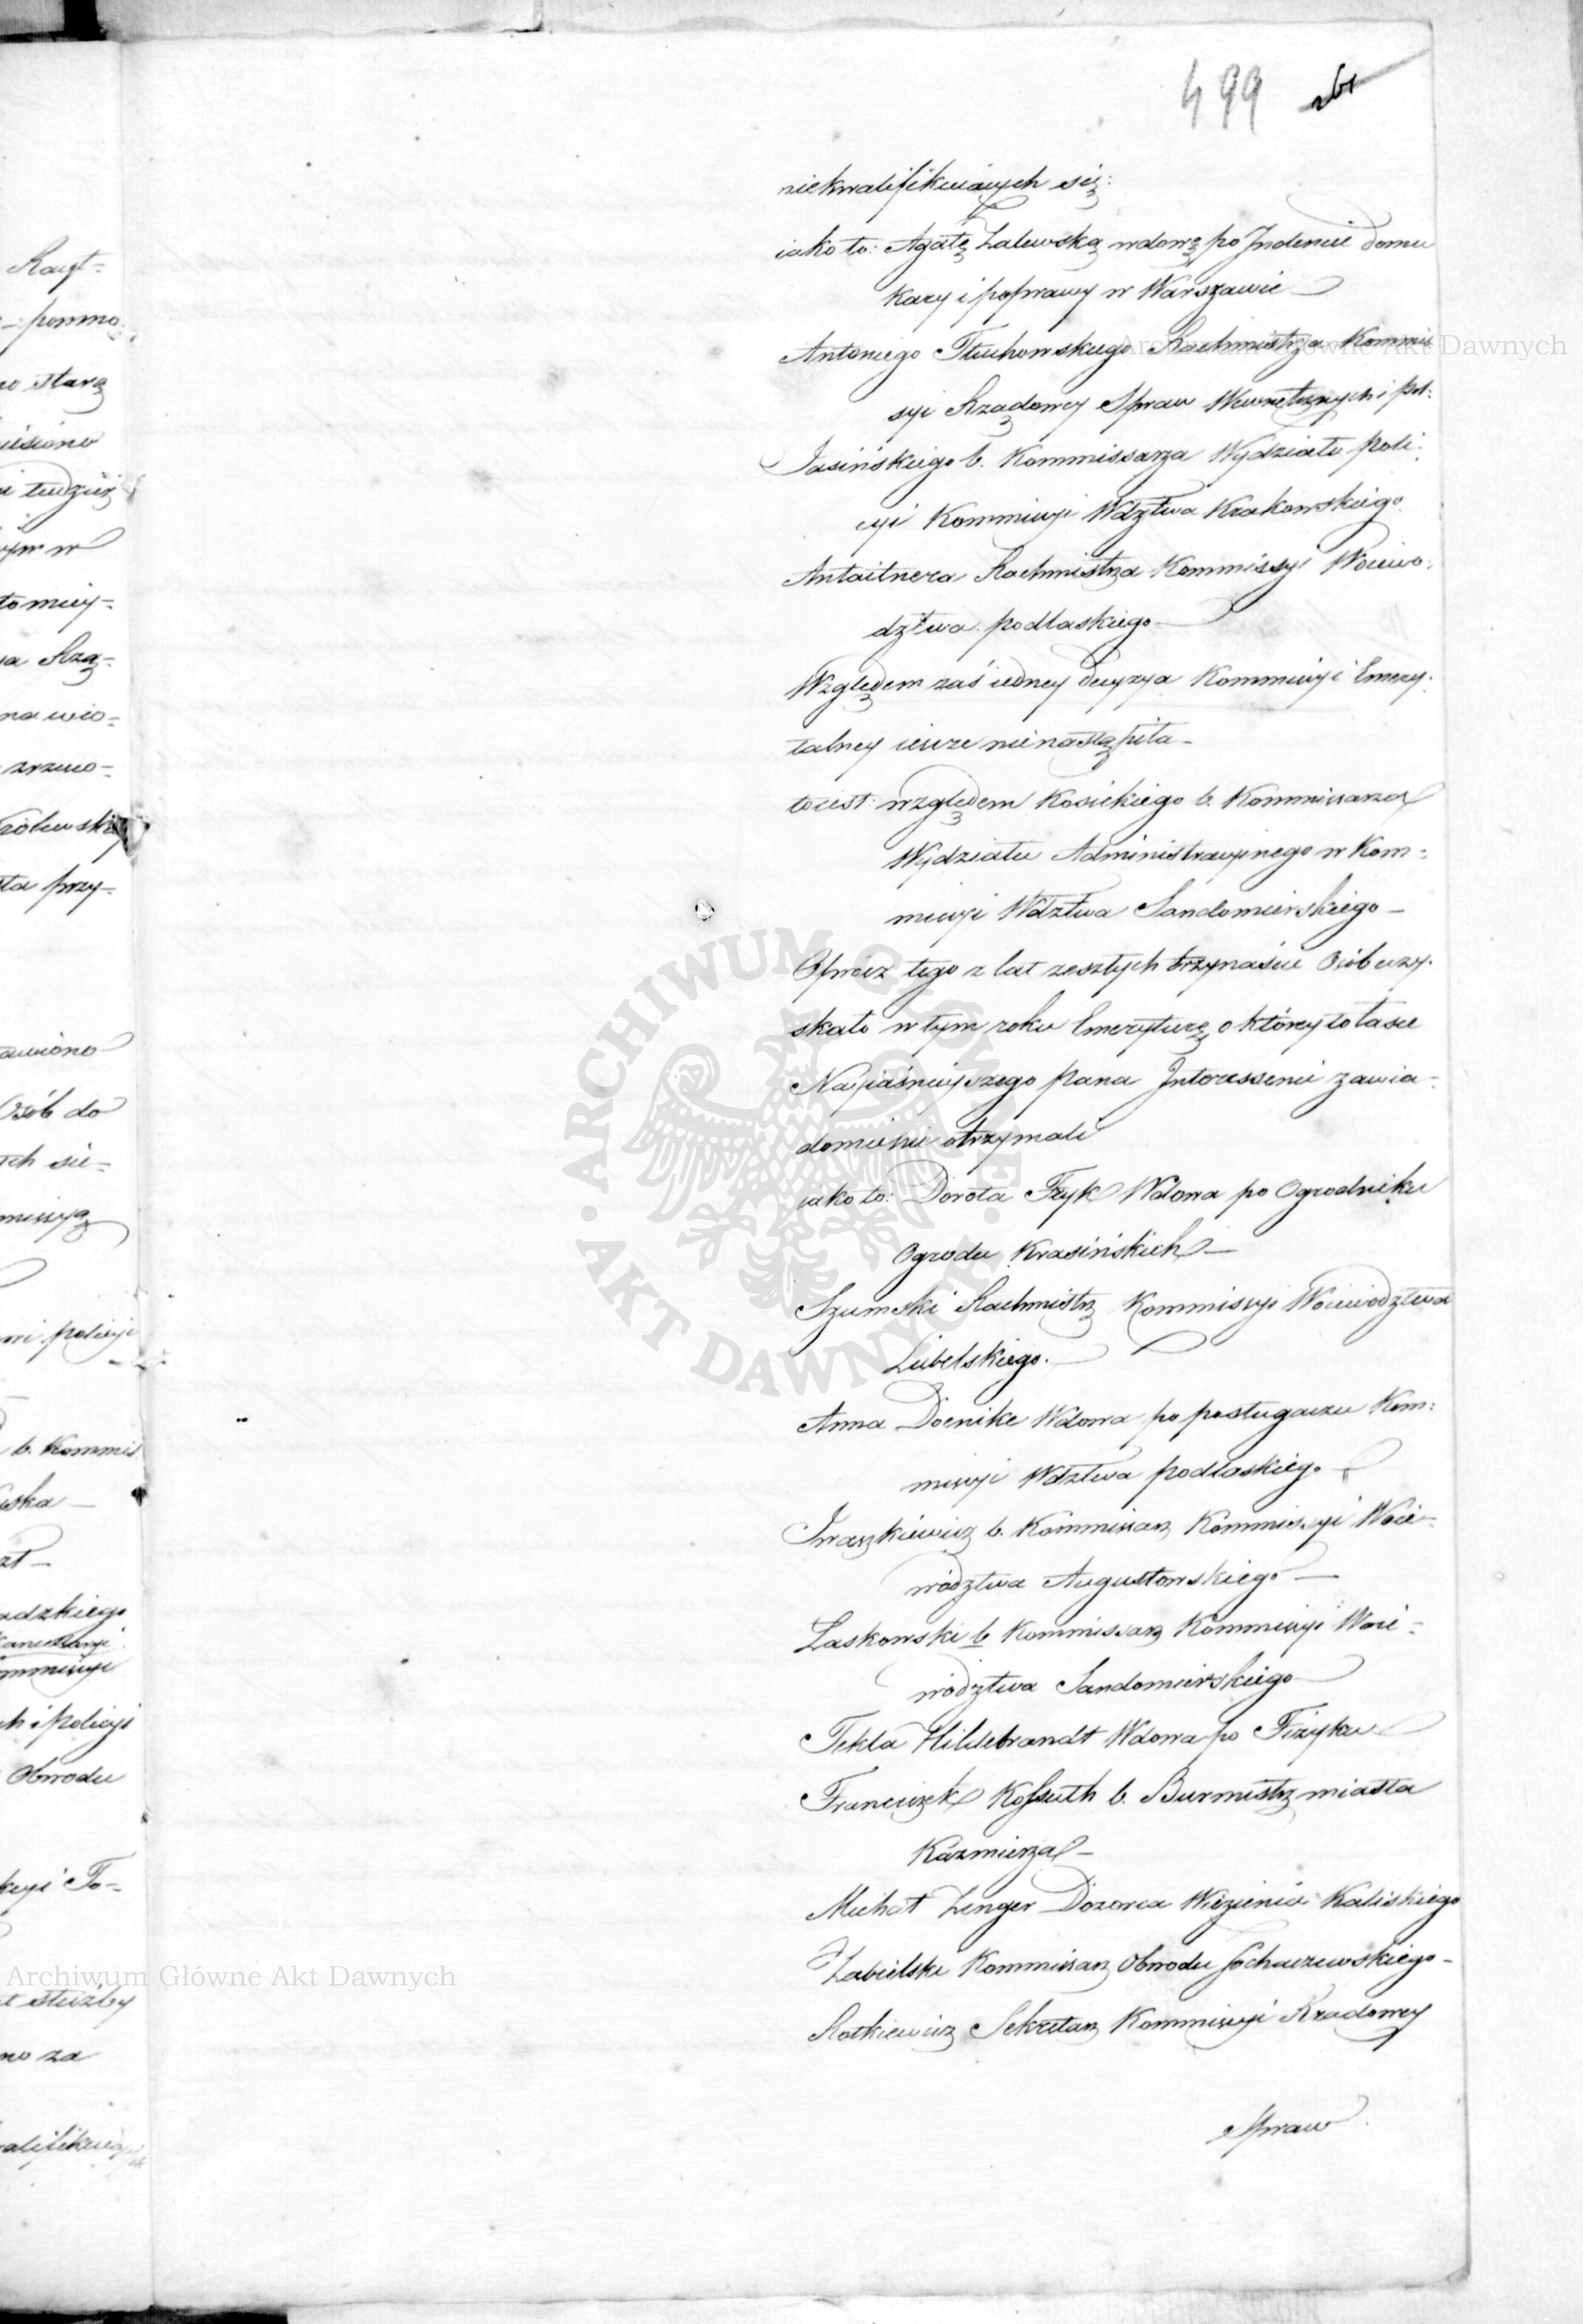 499
niekwalifikuiących się:
iako to: Agatę Zalewską wdowę po Indencie domu
kary i poprawy w Warszawie —
Antoniego Tłuchowskiego Rachmistrza Kommis
syi Rządowey Spraw Wewnętrznych i pol:
Jasińskiego b. Kommissarza Wydziału poli:
cyi Kommissyi Wdztwa Krakowskiego.
Rachmistrza Kommissyi Woiewo:
dztwa podlaskiego —
Względem zaś iedney decyzya Kommissyi Emery:
talney ieszcze nienastąpiła —
to iest: względem Kosickiego b. Kommissarza
Wydziału Administracyinego w Kom:
missyi Wdztwa Sandomierskiego —
Oprócz tego z lat zeszłych trzynaście Osób uzy:
skało w tym roku Emeryturę o którey to łasce
Nayiaśnieyszego Pana Interessenci zawia-
domienie otrzymali
iako to: Dorota Fryk Wdowa po Ogrodniku
Ogrodu Krasińskich —
Szumski Rachmistrz Kommissyi Woiewództwa
Lubelskiego. —
Anna Doenike Wdowa po posługaczu Kom:
missyi Wdztwa podlaskiego
Iwaszkiewicz b. Kommissarz Kommissyi Woie-
wództwa Augustowskiego —
Laskowski b. Kommissarz Kommissyi Woie-
wództwa Sandomierskiego —
Tekla Hildebrandt Wdowa po Fizyku
Franciszek Kossuth b. Burmistrz miasta
Kazmierza —
Michał Zenger Dozorca Więzienia Kaliskiego
Zabielski Kommissarz Obwodu Sochaczewskiego —
Rotkiewicz Sekretarz Kommissyi Rządowey
Spraw
Rząd-
no stara
tudzież
na Rzą-
przy-
Osób do
policyi
b. Kommis
i policyi
Obwodu
służby
no za
Archiwum Główne Akt Dawnych
Archiwum Główne Akt Dawnych
ARCHIWUM GŁÓWNE
AKT DAWNYCH